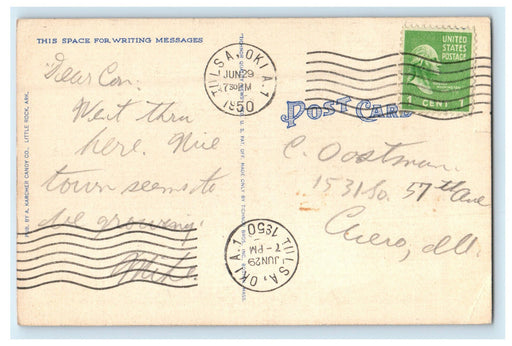 THIS SPACE FOR WRITING MESSAGES
Dear Con.
Went thru
here. Nice
town seems to
be growing.
Mike
PUB. BY A. KARCHER CANDY CO., LITTLE ROCK, ARK.
TULSA, OKLA. 1
JUN 29
7 30 PM
1950
UNITED
STATES
POSTAGE
1 CENT 1
POST CARD
C. Oostman
1531 So. 57th Ave
Cicero, Ill.
TULSA, OKLA. 1
JUN 29
7 - PM
1950